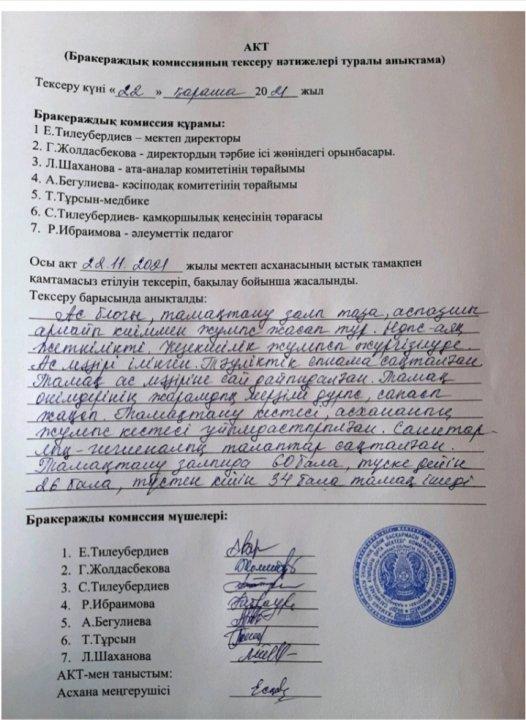 АКТ
(Бракераждық комиссияның тексеру нәтижелері туралы анықтама)
Тексеру күні «22» қараша 2021 жыл
Бракераждық комиссия құрамы:
1 Е.Тилеубердиев – мектеп директоры
2. Г.Жолдасбекова - директордың тәрбие ісі жөніндегі орынбасары.
3. Л.Шаханова - ата-аналар комитетінің төрайымы
4. А.Бегулиева- кәсіподақ комитетінің төрайымы
5. Т.Тұрсын-медбике
6. С.Тилеубердиев- қамқоршылық кеңесінің төрағасы
7. Р.Ибраимова - әлеуметтік педагог
Осы акт 22.11.2021 жылы мектеп асханасының ыстық тамақпен
қамтамасыз етілуін тексеріп, бақылау бойынша жасалынды.
Тексеру барысында анықталды:
Ас блогы, тамақтану залы таза, аспазшы
арнайы киіммен жұмыс жасап тұр. Ыдыс-аяқ
жеткілікті. Кезекшілік жұмысы жүргізілуде.
Ас мәзірі ілінген. Тәуліктік сынама сақталған.
Тамақ ас мәзіріне сай дайындалған. Тамақ
өнімдерінің жарамдық мерзімі дұрыс, сапасы
жақсы. Тамақтану кестесі, асхананың
жұмыс кестесі ұйымдастырылған. Санитар-
лық-гигиеналық талаптар сақталған.
Тамақтану залында 60 бала, түске дейін
26 бала, түстен кейін 34 бала тамақ ішеді
Бракеражды комиссия мүшелері:
1. Е.Тилеубердиев
2. Г.Жолдасбекова
3. С.Тилеубердиев
4. Р.Ибраимова
5. А.Бегулиева
6. Т.Тұрсын
7. Л.Шаханова
АКТ-мен таныстым:
Асхана меңгерушісі